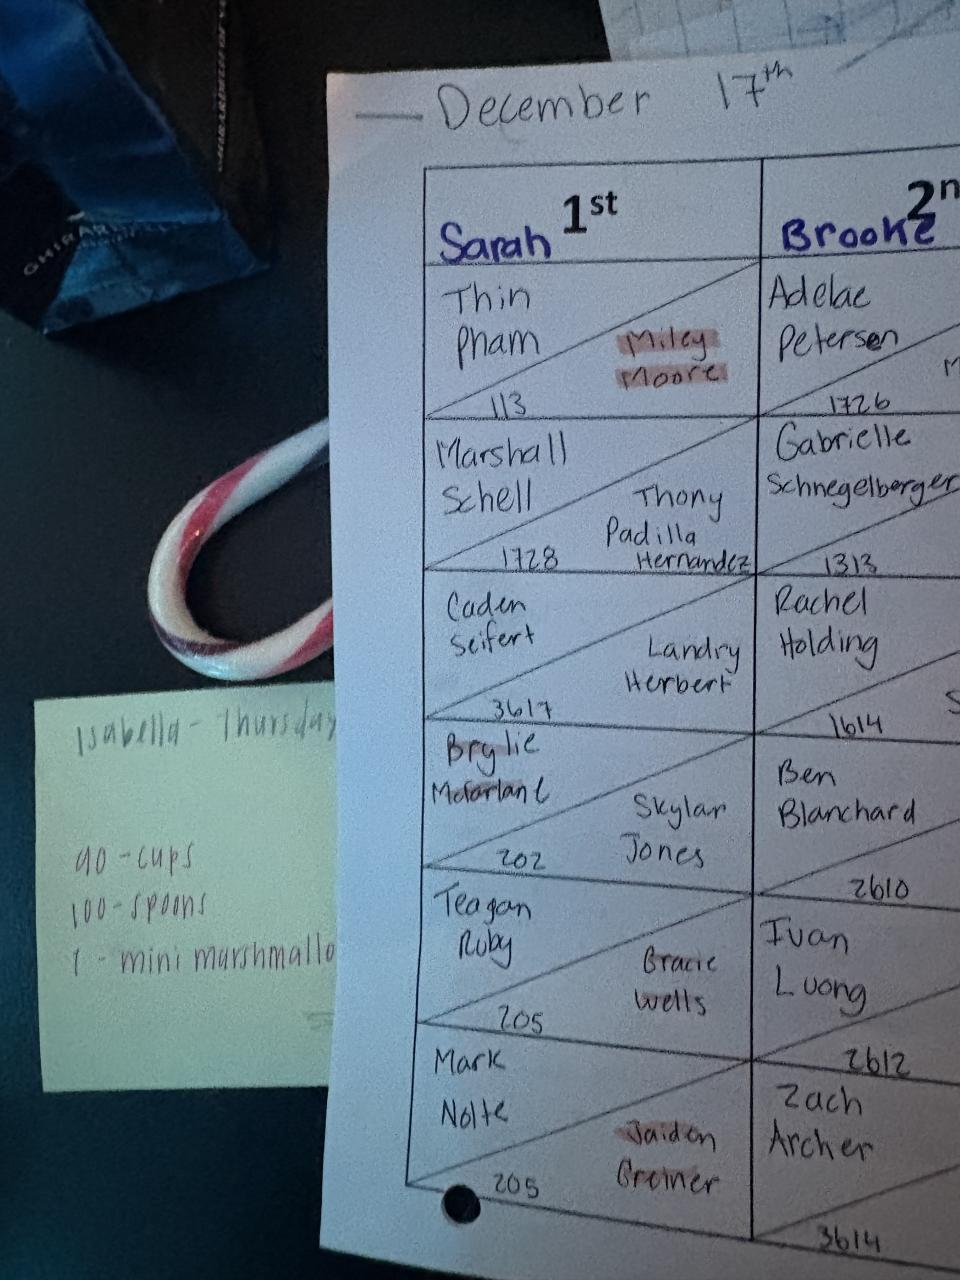 December 17th
1st
Sarah
2n
Brooke
Thin
Pham
Miley
Moore
113
Adelae
Petersen
1726
Marshall
Schell
Thony
Padilla
Hernandez
1728
Gabrielle
Schnegelberger
1313
Caden
Seifert
Landry
Herbert
3617
Rachel
Holding
1614
Brylie
Mcfarlane
Skylar
Jones
202
Ben
Blanchard
2610
Teagan
Ruby
Gracie
Wells
205
Ivan
Luong
2612
Mark
Nolte
Jaiden
Greiner
205
Zach
Archer
3614
Isabella - Thursday
90 - cups
100 - spoons
1 - mini marshmallo